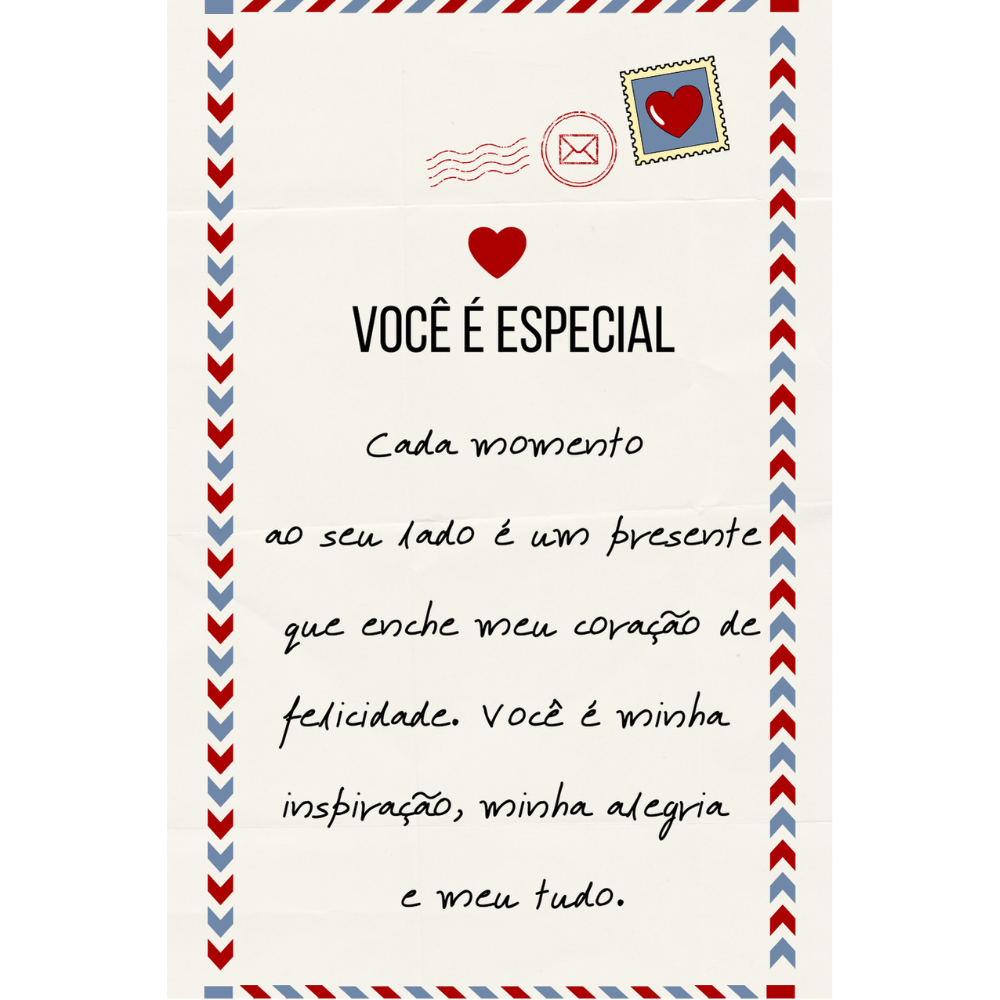 VOCÊ É ESPECIAL
Cada momento
ao seu lado é um presente
que enche meu coração de
felicidade. Você é minha
inspiração, minha alegria
e meu tudo.